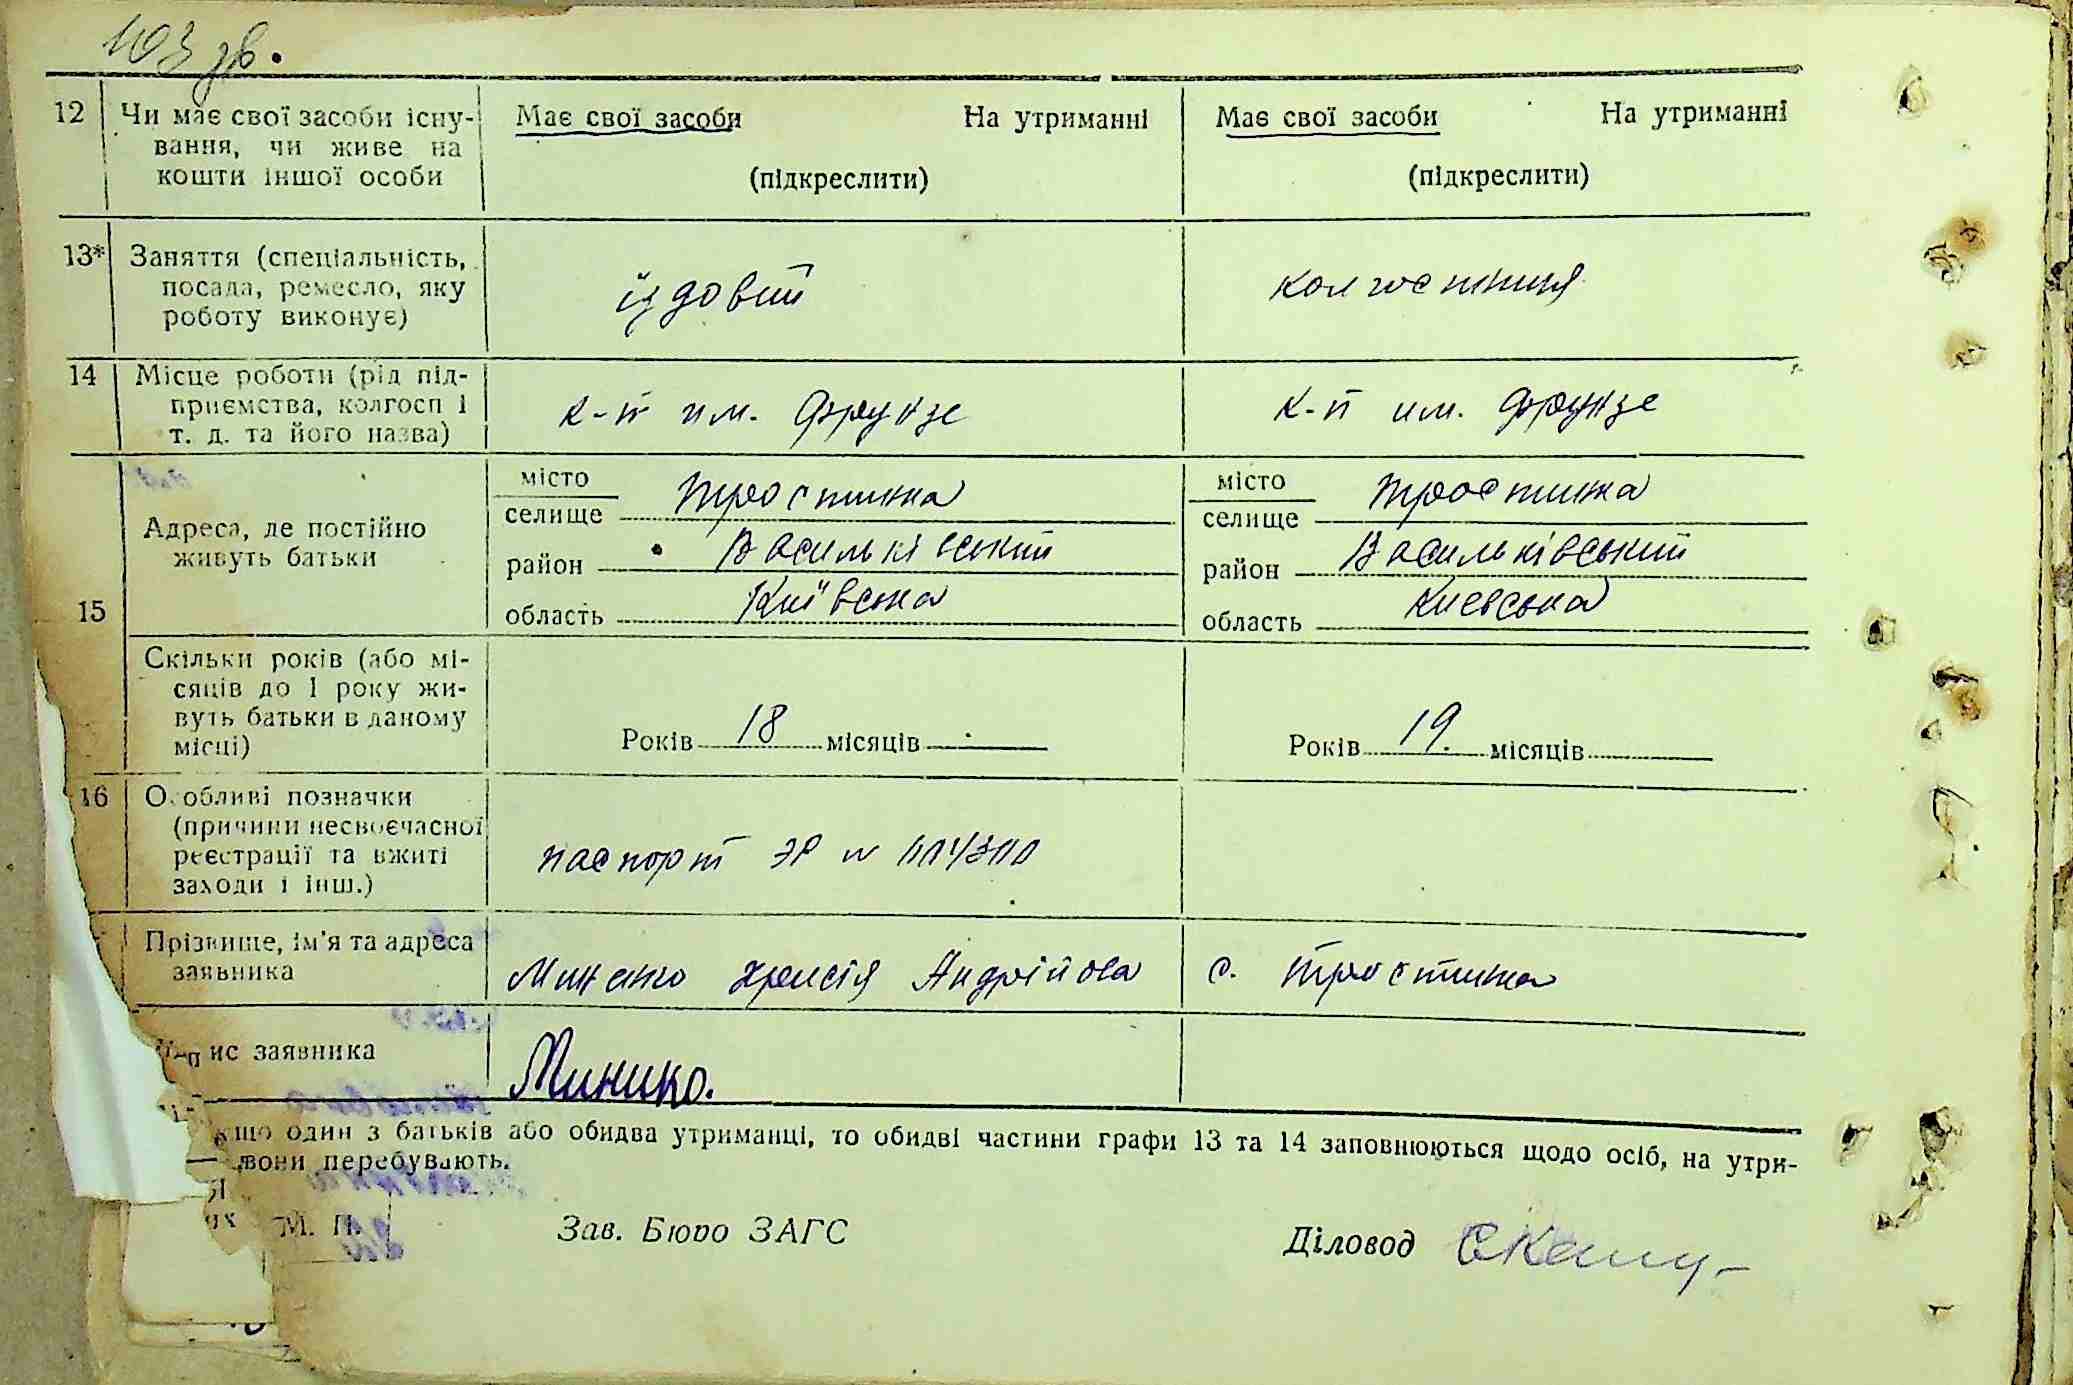 103 зв.
12 Чи має свої засоби існу-
вання, чи живе на
кошти іншої особи
Має свої засоби На утриманні
(підкреслити)
Має свої засоби На утриманні
(підкреслити)
13* Заняття (спеціальність,
посада, ремесло, яку
роботу виконує)
їздовий
колгоспниця
14 Місце роботи (рід під-
приємства, колгосп і
т. д. та його назва)
к-п им. Фрунзе
к-п им. Фрунзе
15
Адреса, де постійно
живуть батьки
місто
селище Тростинка
район Васильківський
область Київська
місто
селище Тростинка
район Васильківський
область Киевська
Скільки років (або мі-
сяців до 1 року жи-
вуть батьки в даному
місці)
Років 18 місяців
Років 19. місяців
16 Особливі позначки
(причини несвоєчасної
реєстрації та вжиті
заходи і інш.)
паспорт ЭР №
Прізвище, ім'я та адреса
заявника
Миненко Христя Андрійова
с. Тростинка
ис заявника
Минико.
що один з батьків або обидва утриманці, то обидві частини графи 13 та 14 заповнюються щодо осіб, на утри-
вони перебувають.
М. П. Зав. Бюро ЗАГС Діловод